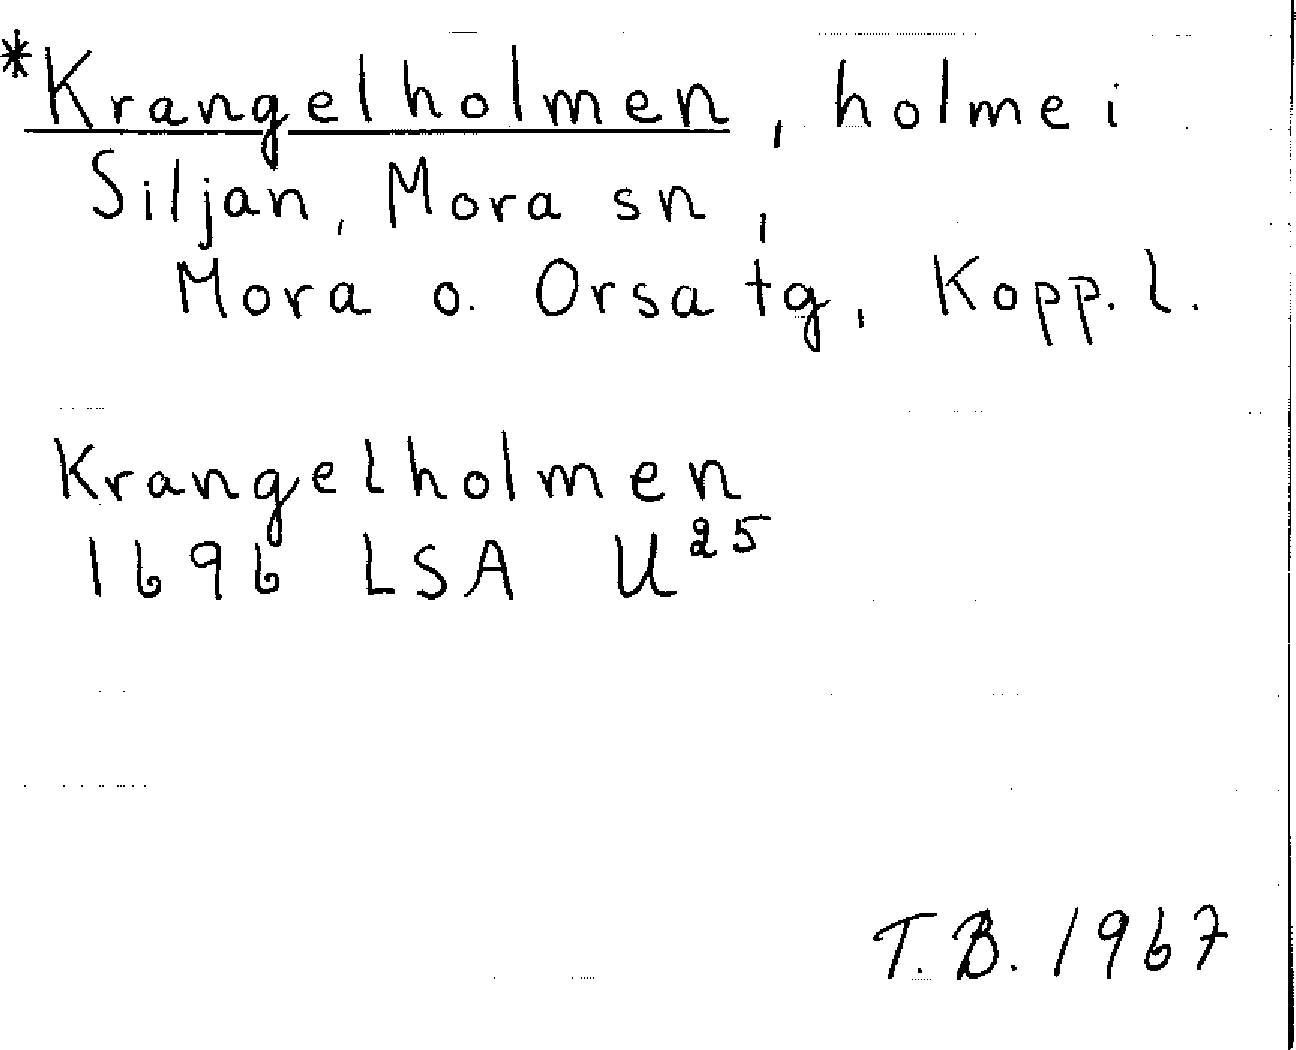 *Krangelholmen, holme i
Siljan, Mora sn,
Mora o. Orsa tg, Kopp. l.
Krangelholmen
1696 LSA U²⁵
T.B. 1967